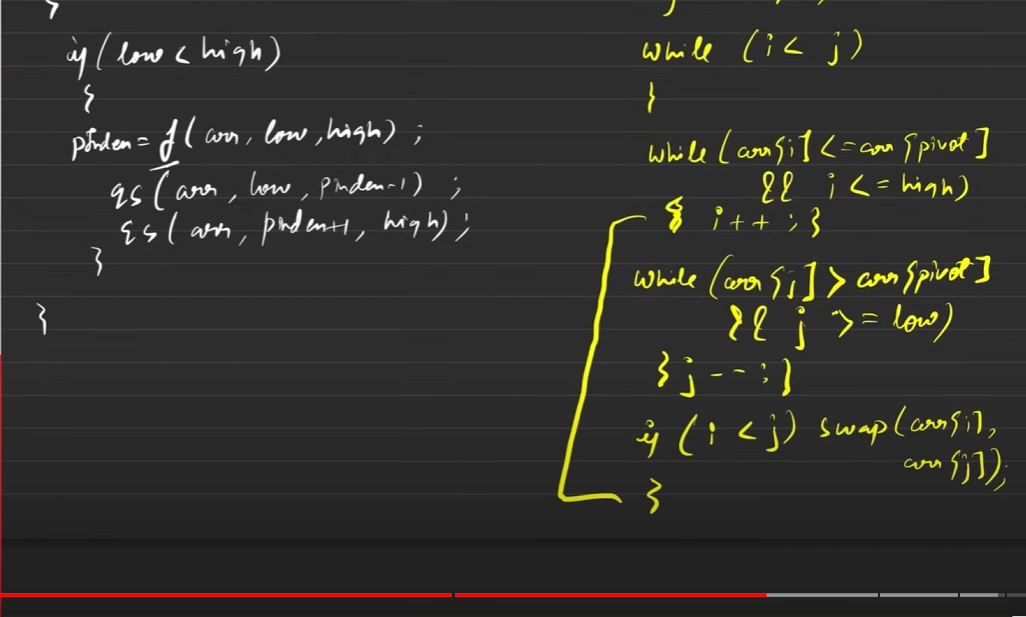 }
if (low < high)
{
pIndex = f(arr, low, high);
qs(arr, low, pIndex-1);
qs(arr, pIndex+1, high);
}
}
while (i < j)
{
while (arr[i] <= arr[pivot]
&& i <= high)
{ i++; }
while (arr[j] > arr[pivot]
&& j >= low)
{ j--; }
if (i < j) swap(arr[i],
arr[j]);
}